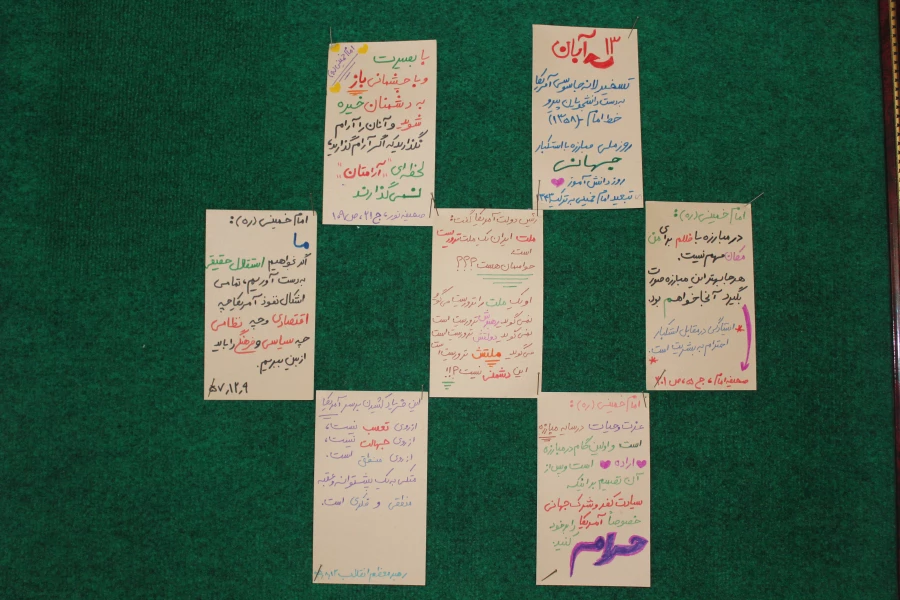 ۱۳ آبان
تسخیر لانه جاسوسی آمریکا
به دست دانشجویان پیرو
خط امام - (۱۳۵۸)
روز ملی مبارزه با استکبار
جهانی
روز دانش آموز
تبعید امام خمینی به ترکیه ۱۳۴۳
با بصیرت
و با چشمانی باز
به دشمنان خیره
شوید و آنان را آرام
نگذارید که اگر آرام گذارید
لحظه ای "آرامتان"
نمی گذارند
صحیفه نور، ج ۲۱، ص ۱۰۹
امام خمینی (ره):
در مبارزه با ظلم برای من
مکان مهم نیست.
هر جا بهتر این مبارزه صورت
بگیرد آنجا خواهم بود
ایستادگی در مقابل استکبار
احترام به بشریت است.
صحیفه امام
رئیس دولت آمریکا گفت:
ملت ایران یک ملت تروریست
است.
حواسمان هست؟؟؟
او یک ملت را تروریست می گوید
نمی گوید تروریست است
نمی گوید دولتش تروریست است
می گوید ملتش تروریست است
این دشمنی نیست؟!!
امام خمینی (ره):
ما
اگر بخواهیم استقلال حقیقی
به دست آوریم، تمامی
اشکال نفوذ آمریکا چه
اقتصادی و چه نظامی
چه سیاسی و فرهنگی را باید
از بین ببریم.
۵۷/۱۲/۹
امام خمینی (ره):
عزت و حیات در سایه مبارزه
است و اولین گام در مبارزه
اراده است و پس از
آن تصمیم بر اینکه
سیادت کفر و شرک جهانی
خصوصاً آمریکا را بر خود
حرام
کنید
این فریاد کشیدن بر سر آمریکا
از روی تعصب نیست،
از روی جهالت نیست،
از روی منطق است.
متکی به یک پشتوانه و عقبه
منطقی و فکری است.
رهبر معظم انقلاب